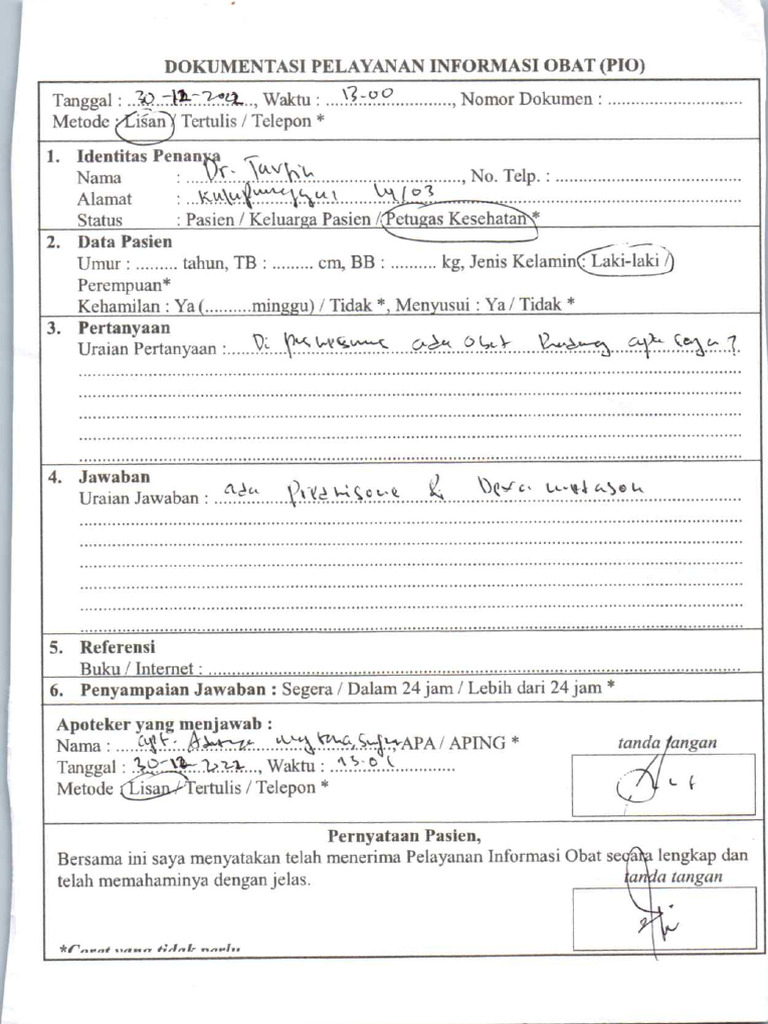 DOKUMENTASI PELAYANAN INFORMASI OBAT (PIO)
Tanggal : 30-12-2022, Waktu : 13.00, Nomor Dokumen :
Metode : Lisan / Tertulis / Telepon *
1. Identitas Penanya
Nama : Dr., No. Telp. :
Alamat : 04/03
Status : Pasien / Keluarga Pasien / Petugas Kesehatan *
2. Data Pasien
Umur : ......... tahun, TB : ......... cm, BB : .......... kg, Jenis Kelamin : Laki-laki /
Perempuan*
Kehamilan : Ya (..........minggu) / Tidak *, Menyusui : Ya / Tidak *
3. Pertanyaan
Uraian Pertanyaan : Di ada obat apa saja ?
4. Jawaban
Uraian Jawaban : ada &
5. Referensi
Buku / Internet :
6. Penyampaian Jawaban : Segera / Dalam 24 jam / Lebih dari 24 jam *
Apoteker yang menjawab :
Nama : apt. APA / APING *
tanda tangan
Tanggal : 30-12-2022, Waktu :
Metode : Lisan / Tertulis / Telepon *
Pernyataan Pasien,
Bersama ini saya menyatakan telah menerima Pelayanan Informasi Obat secara lengkap dan
telah memahaminya dengan jelas.
tanda tangan
*Coret yang tidak perlu